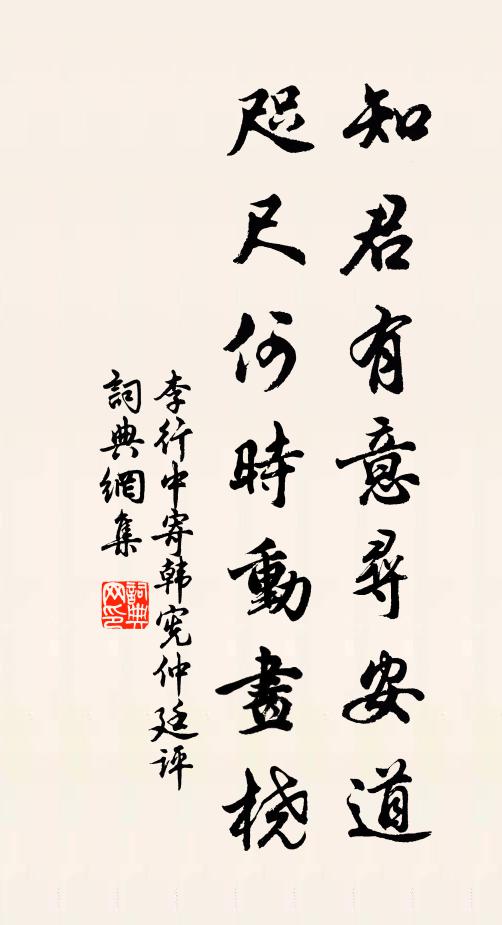 知君有意尋安道
咫尺何時動畫橈
李行中寄韓宪仲廷評
詞典網集
詞典網印